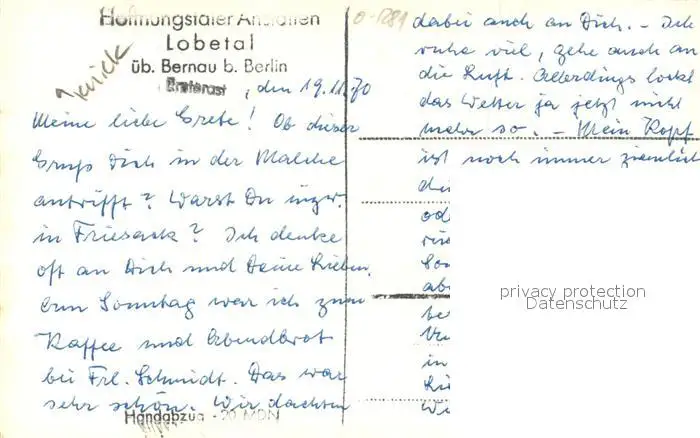 Hoffnungstaler Anstalten
Lobetal
üb. Bernau b. Berlin
Breterast, den 19.11.70
zurück
Meine liebe Grete! Ob dieser
Gruß Dich in der Malche
antrifft? Warst Du inzw.
in Friesack? Ich denke
oft an Dich und Deine Lieben.
Am Sonntag war ich zum
Kaffee und Abendbrot
bei Frl. Schmidt. Das war
sehr schön. Wir dachten
Handabzug - 20 MDN
dabei auch an Dich. - Ich
ruhe viel, gehe auch an
die Luft. Allerdings lockt
das Wetter ja jetzt nicht
mehr so. - Mein Kopf
ist noch immer ziemlich
od
in
privacy protection
Datenschutz